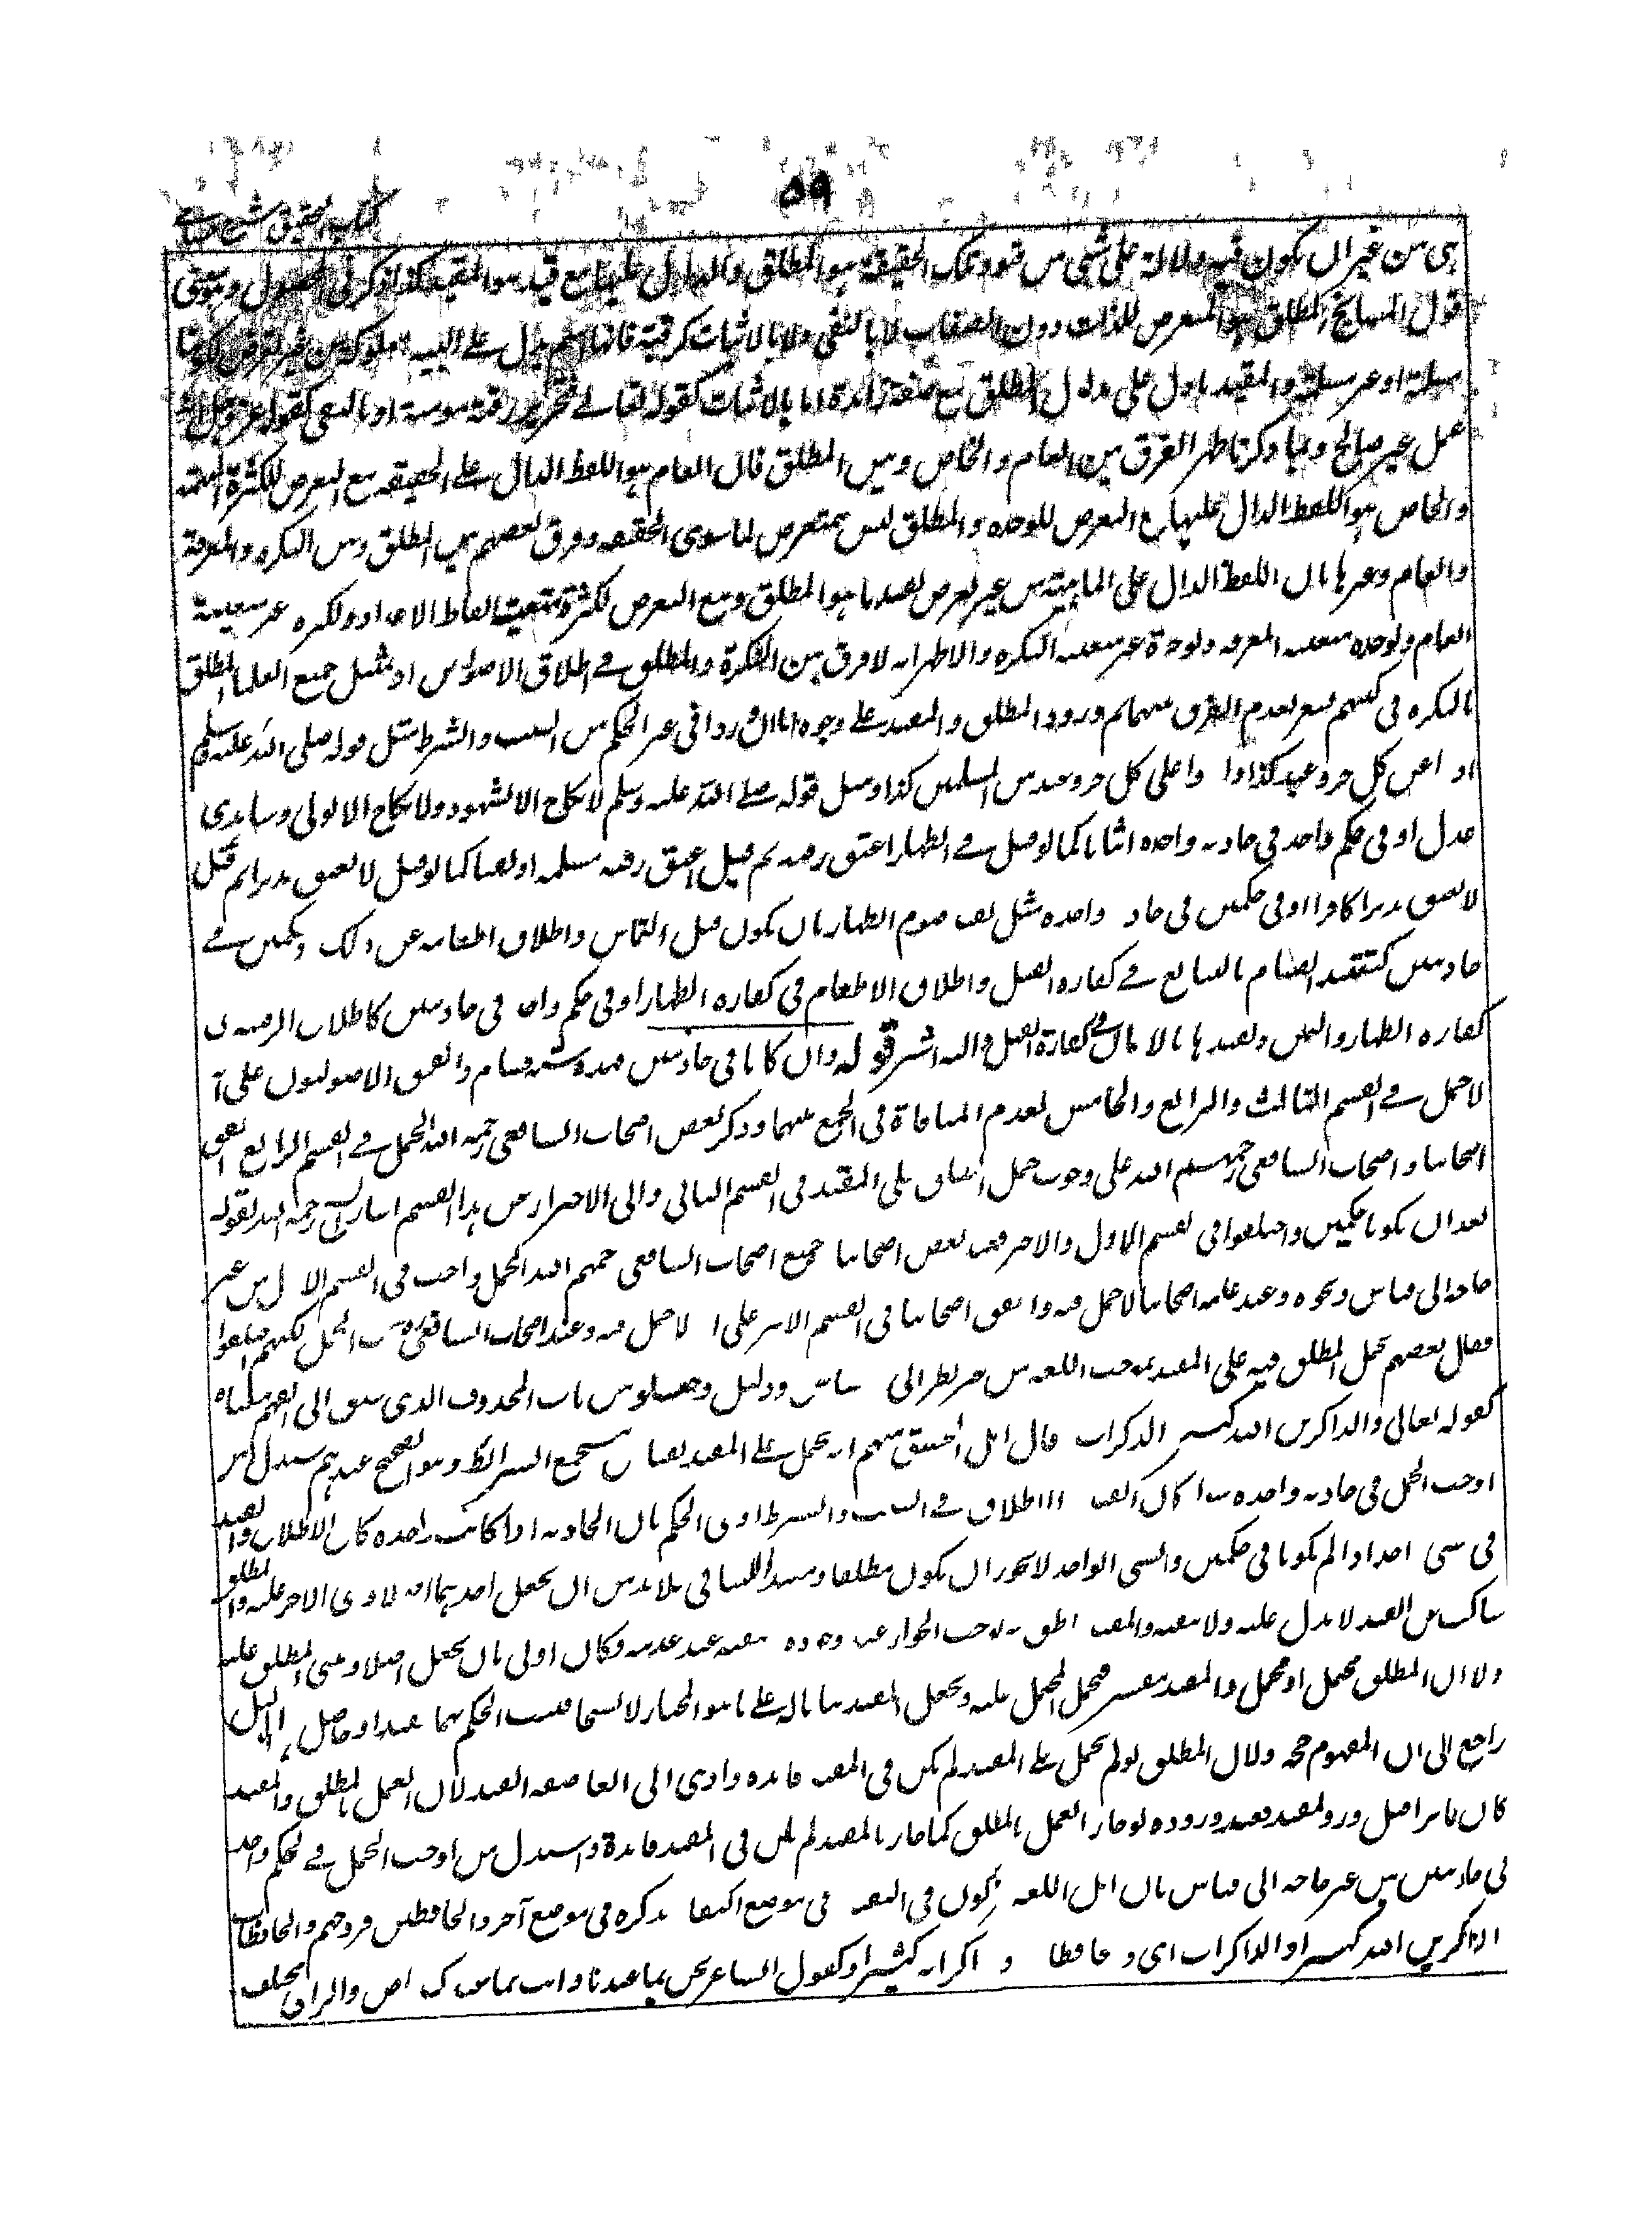 ٥٩
كتاب التحقيق شرح حسامي
هى من غير ان يكون فيه دلالة على شئ من قيود تلك الحقيقة هو المطلق والدال عليها مع قيد هو المقيد كذا ذكر فى المحصول وهو معنى
قول المشايخ المطلق هو المتعرض للذات دون الصفات لا بالنفى ولا بالاثبات كرقبة فانها اسم يدل على البنية مملوكة من غير تعرض لكونها
مسلمة او غير مسلمة والمقيد ما دل على مدلول المطلق مع صفة زائدة اما بالاثبات كقوله تعالى فتحرير رقبة مومنة او بالنفى كقوله عز وجل انه
عمل غير صالح وبما ذكرنا ظهر الفرق بين العام والخاص وبين المطلق فان العام هو اللفظ الدال على الحقيقة مع التعرض للكثرة
والخاص هو اللفظ الدال عليها مع التعرض للوحدة والمطلق ليس بمتعرض لما سوى الحقيقة وفرق بعضهم بين المطلق وبين النكرة والمعرفة
والعام وغيرها بان اللفظ الدال على الماهية من غير تعرض لقيد ما هو المطلق ومع التعرض لكثرة متعينة الفاظ الاعداد ولكثرة غير متعينة
العام ولوحدة متعينة المعرفة ولوحدة غير متعينة النكرة والاظهر انه لا فرق بين النكرة والمطلق فى اطلاق الاصوليين اذ تمثيل جميع العلماء المطلق
بالنكرة فى كتبهم يشعر بعدم الفرق بينهما ثم ورود المطلق والمقيد على وجوه اما ان وردا فى غير الحكم من السبب والشرط مثل قوله صلى الله عليه وسلم
ادوا عن كل حر وعبد كذا ادوا على كل حر وعبد من المسلمين كذا ومثل قوله صلى الله عليه وسلم لا نكاح الا بشهود ولا نكاح الا بولى وشاهدى
عدل او فى حكم واحد فى حادثة واحدة اثباتا كما لو قيل فى الظهار اعتق رقبة ثم قيل اعتق رقبة مسلمة او نفيا كما لو قيل لا تعتق مدبرا ثم قيل
لا تعتق مدبرا كافرا او فى حكمين فى حادثة واحدة مثل تقييد صوم الظهار بان يكون قبل التماس واطلاق اطعامه عن ذلك او حكمين فى
حادثتين كتقييد الصيام بالتتابع فى كفارة القتل واطلاق الاطعام فى كفارة الظهار او فى حكم واحد فى حادثتين كاطلاق الرقبة فى
كفارة الظهار واليمين وتقييدها بالايمان فى كفارة القتل واليه اشير قوله وان كانا فى حادثتين فهذه ستة اقسام واتفق الاصوليون على ان
لا حمل فى القسم الثالث والرابع والخامس لعدم المنافاة فى الجمع بينهما وذكر بعض اصحاب الشافعى رحمه الله الحمل فى القسم الرابع اتفق
اصحابنا واصحاب الشافعى رحمهم الله على وجوب حمل المطلق على المقيد فى القسم الثانى والى الاحتراز عن هذا القسم اشار الشيخ رحمه الله بقوله
بعد ان يكونا حكمين واختلفوا فى القسم الاول والاخير فعند بعض اصحابنا وجميع اصحاب الشافعى رحمهم الله الحمل واجب فى القسم الاول من غير
حاجة الى قياس ونحوه وعند عامة اصحابنا لا حمل فيه واتفق اصحابنا فى القسم الاخير على ان لا حمل فيه وعند اصحاب الشافعى يجب الحمل لكنهم اختلفوا
فقال بعضهم يحمل المطلق فيه على المقيد بموجب اللغة من غير نظر الى قياس ودليل وجعلوه من باب المحذوف الذى سبق الى الفهم معناه
كقوله تعالى والذاكرين الله كثيرا والذاكرات وقال اهل التحقيق منهم انه يحمل على المقيد بقياس مستجمع الشرائط وهو الصحيح عندهم استدل من
اوجب الحمل فى حادثة واحدة سواء كان القيد والاطلاق فى السبب والشرط او فى الحكم بان الحادثة اذا كانت واحدة كان الاطلاق والتقييد
فى شئ واحد اذا لم يكونا فى حكمين والشئ الواحد لا يجوز ان يكون مطلقا ومقيدا للتنافى فلا بد من ان يجعل احدهما اصلا ويبنى الاخر عليه والمطلق
ساكت عن القيد لا يدل عليه ولا ينفيه والمقيد ناطق به يوجب الجواز عند وجوده وينفيه عند عدمه فكان اولى بان يجعل اصلا ويبنى المطلق عليه
ولان المطلق محتمل او مجمل والمقيد مفسر فيحمل المحتمل عليه ويجعل المقيد بيانا له على ما هو المختار لا نسخا فيثبت الحكم بهما مقيدا وحاصل هذا الدليل
راجع الى ان المفهوم حجة ولان المطلق لو لم يحمل على المقيد لم يكن فى المقيد فائدة وادى الى الغاء صفة القيد لان العمل بالمطلق والمقيد
كان جائزا قبل ورود المقيد فبعد وروده لو جاز العمل بالمطلق كما جاز بالمقيد لم يكن فى المقيد فائدة واستدل من اوجب الحمل فى حكم واحد
فى حادثتين من غير حاجة الى قياس بان اهل اللغة يتركون فى التقييد فى موضع اكتفاء بذكره فى موضع آخر والحافظين فروجهم والحافظات
الذاكرين الله كثيرا والذاكرات اى وحافظات وذاكراته كثيرا وكقول الشاعر نحن بما عندنا وانت بما عندك راض والراى مختلف